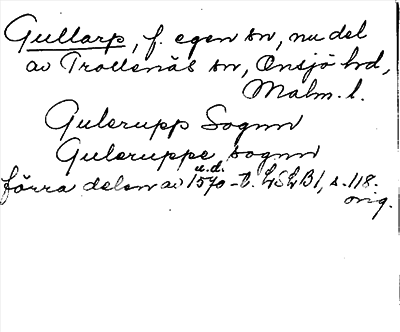 Gullarp, f. egen sn, nu del
av Trollenäs sn, Onsjö hd,
Malm. l.
Gulerupp Sognn
Guleruppe sognn
u.d.
förra delen av 1570-t. LSLB1, s. 118.
orig.